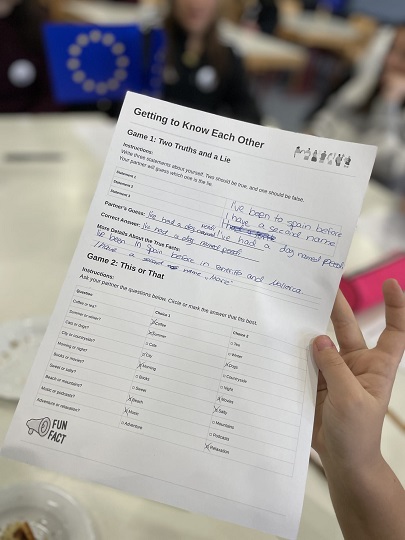 Getting to Know Each Other
Game 1: Two Truths and a Lie
Instructions:
Write three statements about yourself. Two should be true, and one should be false.
Your partner will guess which one is the lie.
Statement 1 I've been to Spain before
Statement 2 I have a second name
Statement 3 I've had a dog named
Partner's Guess: I've had a dog named
Correct Answer: I've had a dog named
More Details About the True Facts:
been in Spain before in and Mallorca.
I have a second name
Game 2: This or That
Instructions:
Ask your partner the questions below. Circle or mark the answer that fits best.
Question Choice 1 Choice 2
Coffee or tea? Coffee Tea
Summer or winter? Summer Winter
Cats or dogs? Cats Dogs
City or countryside? City Countryside
Morning or night? Morning Night
Books or movies? Books Movies
Sweet or salty? Sweet Salty
Beach or mountains? Beach Mountains
Music or podcasts? Music Podcasts
Adventure or relaxation? Adventure Relaxation
FUN
FACT